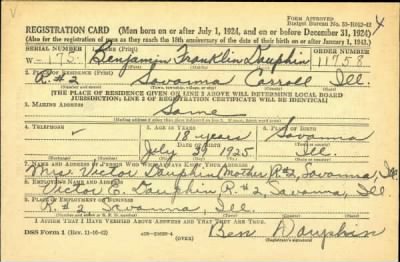 FORM APPROVED
Budget Bureau No. 33-R012-42
REGISTRATION CARD (Men born on or after July 1, 1924, and on or before December 31, 1924)
(Also for the registration of men as they reach the 18th anniversary of the date of their birth on or after January 1, 1943.)
SERIAL NUMBER 1. NAME (Print) ORDER NUMBER
W-175 Benjamin Franklin Dauphin 11758
2. PLACE OF RESIDENCE (Print)
R. #2 Savanna Carroll Ill.
(Town, township, village, or city) (County) (State)
[THE PLACE OF RESIDENCE GIVEN ON LINE 2 ABOVE WILL DETERMINE LOCAL BOARD
JURISDICTION; LINE 2 OF REGISTRATION CERTIFICATE WILL BE IDENTICAL]
3. MAILING ADDRESS
Same
4. TELEPHONE 5. AGE IN YEARS 6. PLACE OF BIRTH
18 years Savanna
DATE OF BIRTH
July 1925 Ill
7. NAME AND ADDRESS OF PERSON WHO WILL ALWAYS KNOW YOUR ADDRESS
Mrs. Victor Dauphin (Mother) R#2, Savanna, Ill
8. EMPLOYER'S NAME AND ADDRESS
Victor E. Dauphin R. #2, Savanna, Ill
9. PLACE OF EMPLOYMENT OR BUSINESS
R. #2 Savanna, Ill.
I AFFIRM THAT I HAVE VERIFIED ABOVE ANSWERS AND THAT THEY ARE TRUE.
DSS Form 1 (Rev. 11-16-42) (OVER) Ben Dauphin
(Registrant's signature)